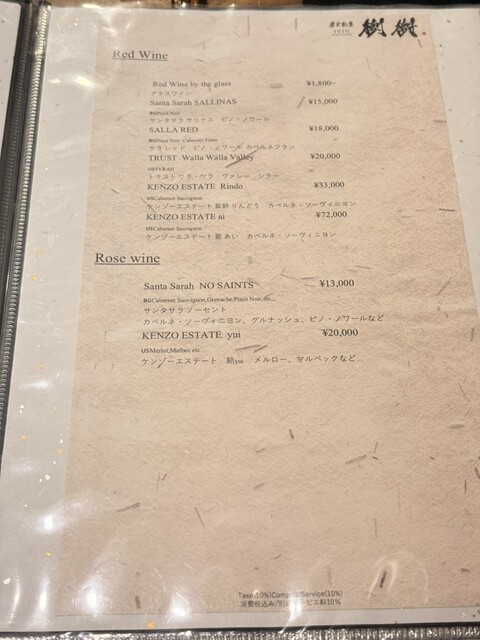 1010
樹樹
Red Wine
Red Wine by the glass ¥1,800~
グラスワイン
Santa Sarah SALLINAS ¥15,000
BGPinot Noir
サンタサラ サリナス ピノ・ノワール
SALLA RED ¥18,000
BGPinot Noir Cabernet Franc
サラ レッド ピノ・ノワール カベルネフラン
TRUST Walla Walla Valley ¥20,000
USSYRAH
トラスト ワラ・ワラ・ヴァレー シラー
KENZO ESTATE Rindo ¥33,000
USCabernet Sauvignon
ケンゾーエステート 紫鈴 りんどう カベルネ・ソーヴィニヨン
KENZO ESTATE ai ¥72,000
USCabernet Sauvignon
ケンゾーエステート 藍 あい カベルネ・ソーヴィニヨン
Rose wine
Santa Sarah NO SAINTS ¥13,000
BGCabernet Sauvignon,Grenache,Pinot Noir,etc...
サンタサラ ノーセント
カベルネ・ソーヴィニヨン、グルナッシュ、ピノ・ノワールなど
KENZO ESTATE yui ¥20,000
USMerlot,Malbec etc
ケンゾーエステート 結yui メルロー、マルベックなど
Taxe(10%) Service(10%)
消費税込み/別 ビス料10%